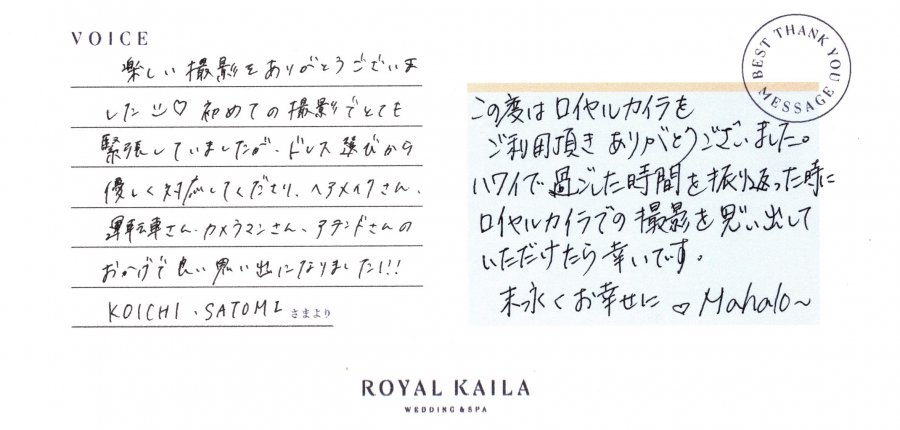 VOICE
楽しい撮影をありがとうございま
した♡初めての撮影でとても
緊張していましたが、ドレス選びから
優しく対応してくださり、ヘアメイクさん、
運転車さん、カメラマンさん、アテンドさんの
おかげで良い思い出になりました!!!
KOICHI、SATOMI さまより
BEST THANK YOU MESSAGE
この度はロイヤルカイラを
ご利用頂きありがとうございました。
ハワイで過ごした時間を振り返った時に
ロイヤルカイラでの撮影を思い出して
いただけたら幸いです。
末永くお幸せに♡Mahalo~
ROYAL KAILA
WEDDING & SPA